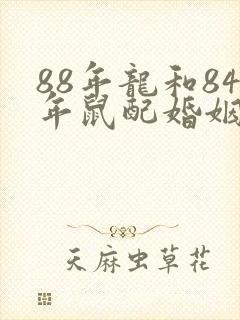 88年龍和84
年鼠配婚姻
天麻虫草花